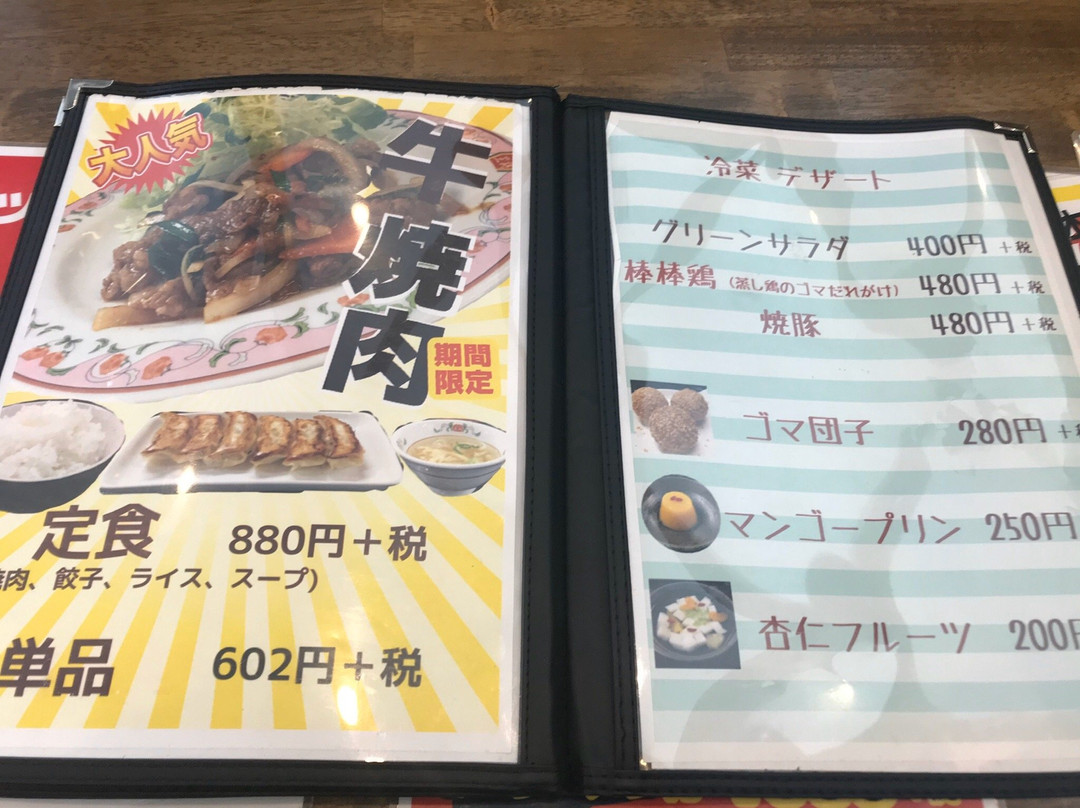 大人気
牛焼肉
期間
限定
定食 880円＋税
焼肉、餃子、ライス、スープ)
単品 602円＋税
冷菜 デザート
グリーンサラダ 400円＋税
棒棒鶏(蒸し鶏のゴマだれがけ) 480円＋税
焼豚 480円＋税
ゴマ団子 280円＋税
マンゴープリン 250円
杏仁フルーツ 200円